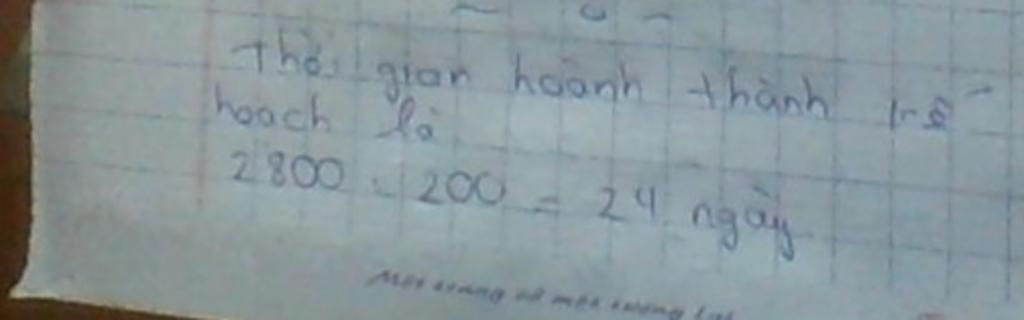 Thời gian hoành thành kế
hoạch là
2800 : 200 = 24 ngày